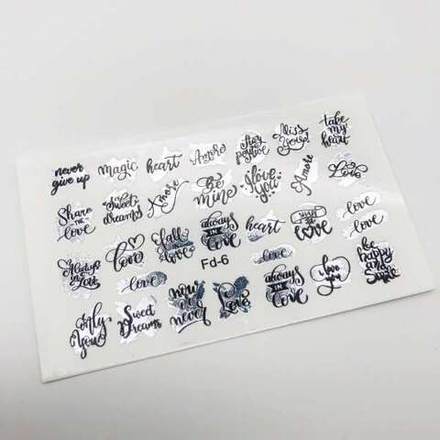 never
give up
magic
heart
Amore
Miss
You
take
my
heart
Share
the
love
Sweet
dreams
Amore
be
mine
I love
you
Amore
Love
Always
in love
love
fall
in love
always
IN
love
heart
love
love
love
love
be
happy
and
smile
Only
You
Sweet
Dreams
now
or
never
Love
Fd-6
always
IN
love
I love
you